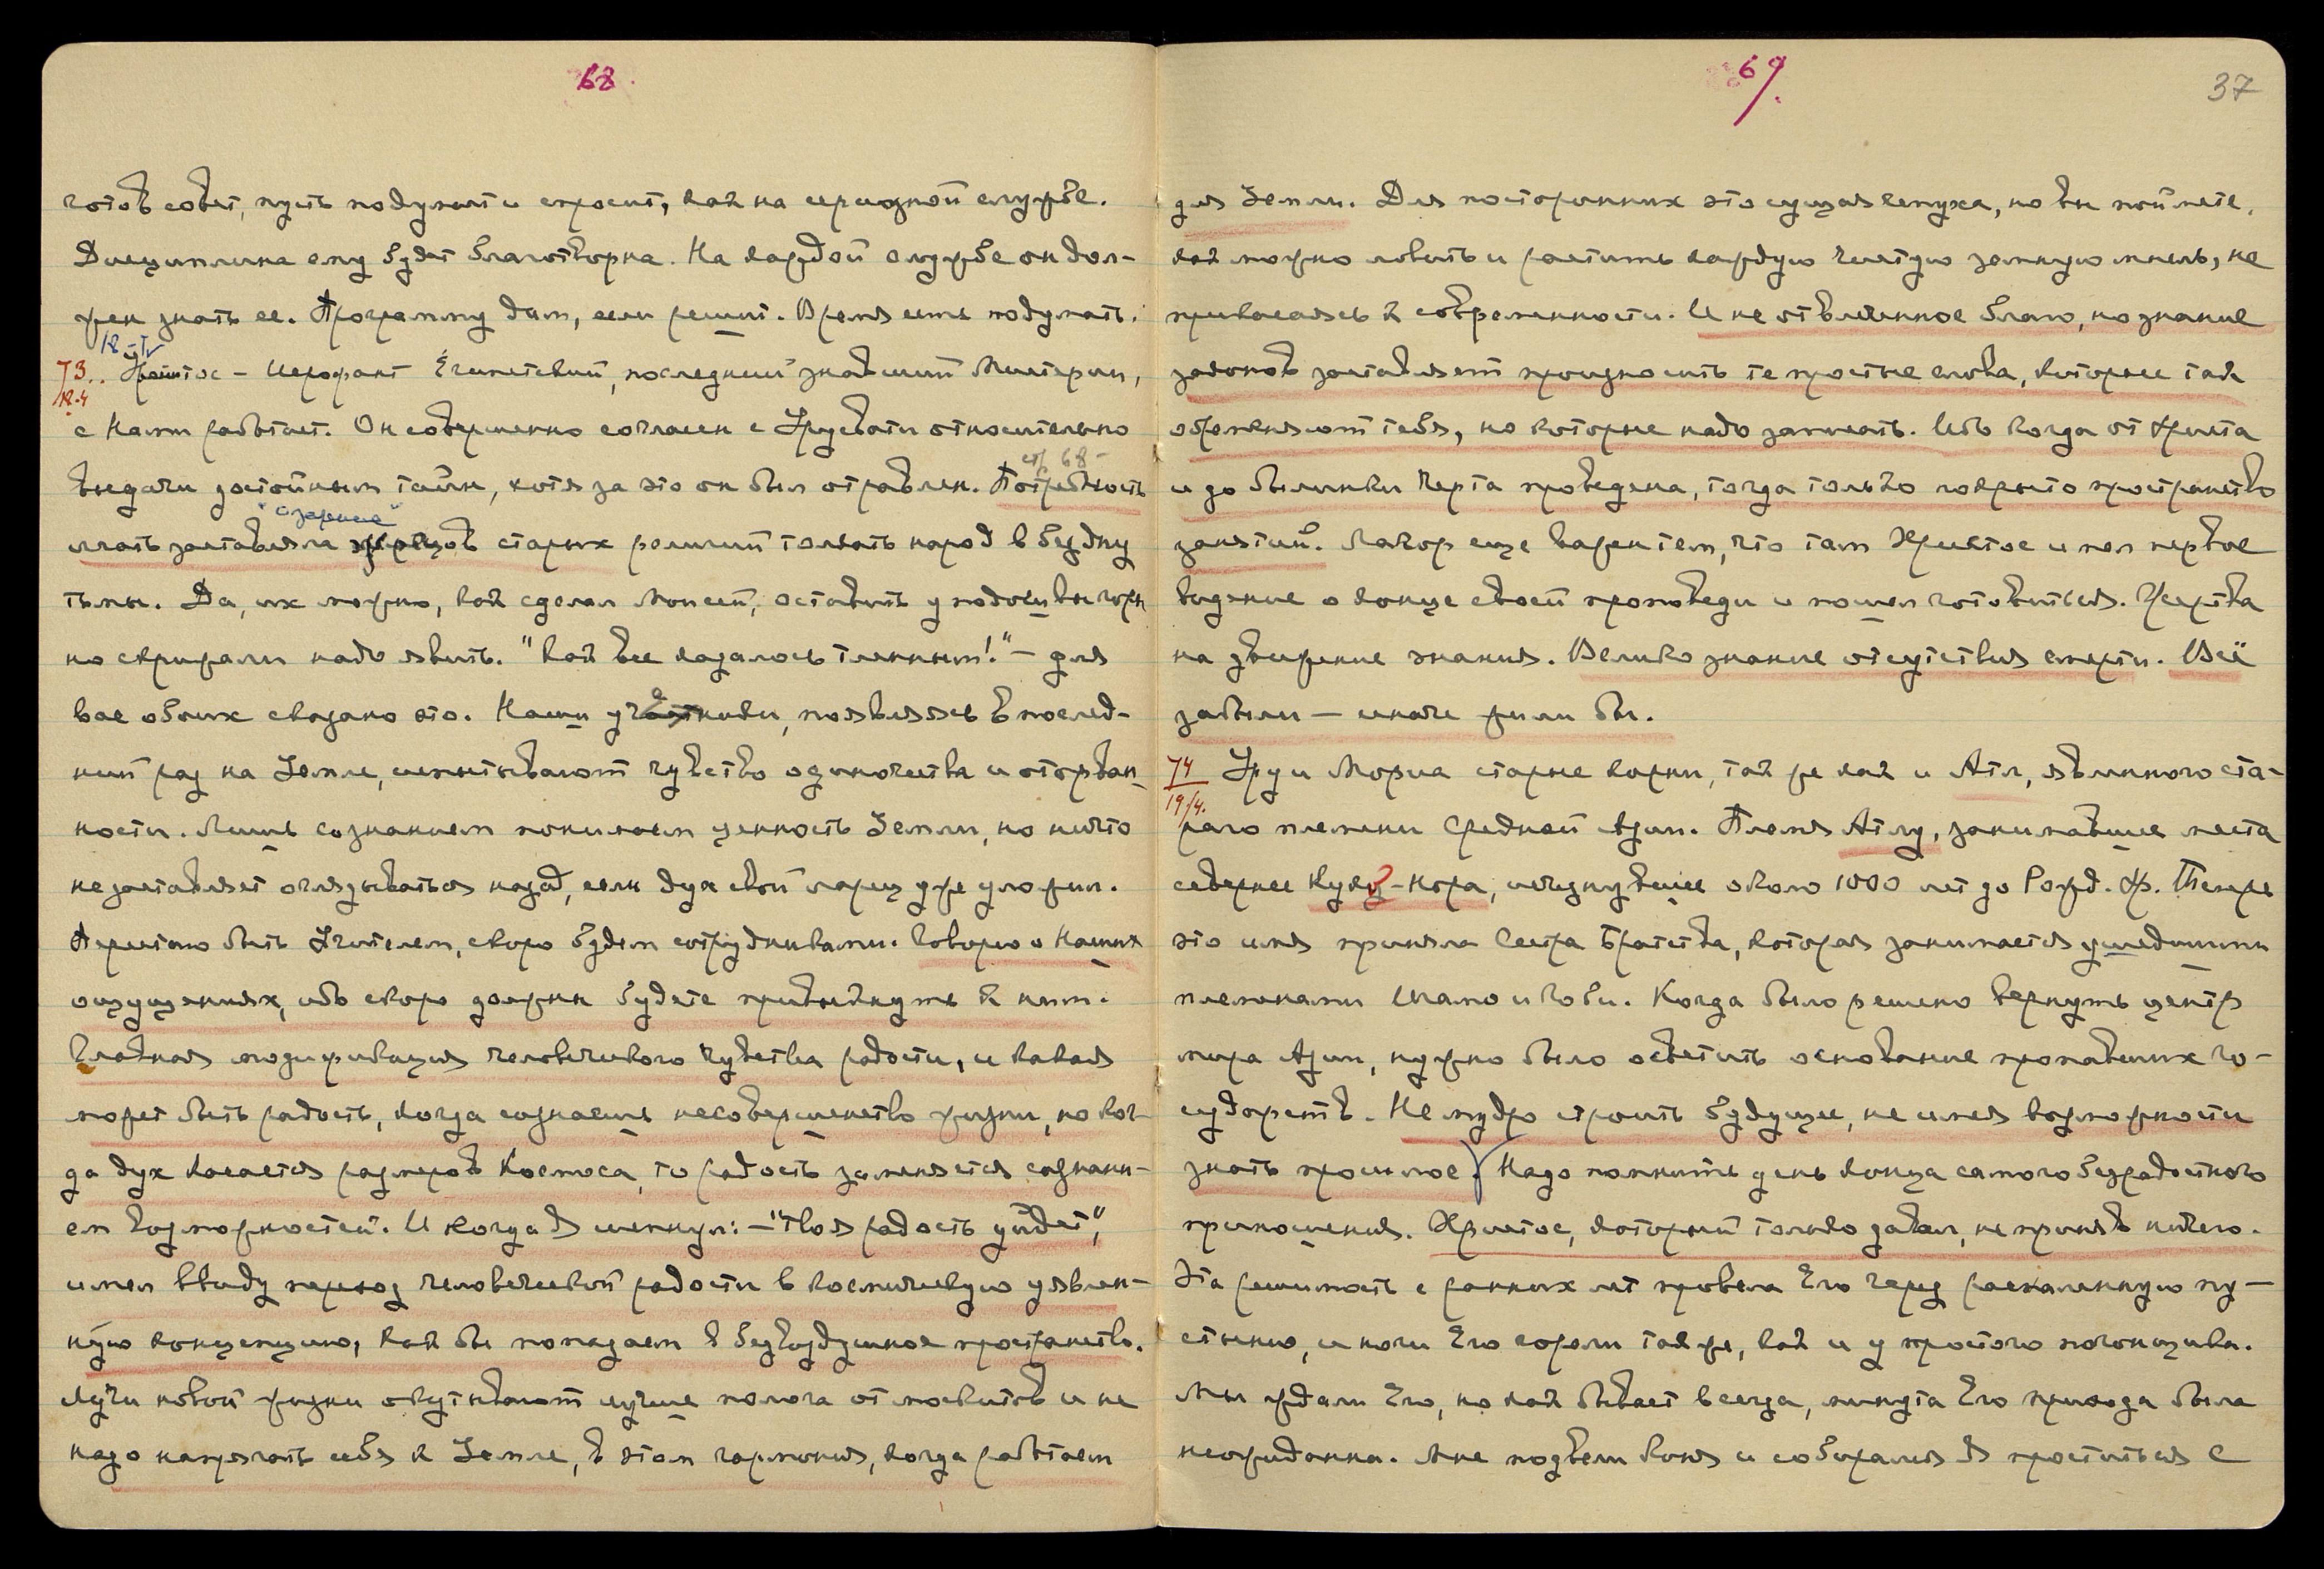 68
готов совет, пусть подумает и спросит, как на серьезной службе.
Дисциплина ему будет благотворна. На каждой службе он дол-
жен знать ее. Программу дам, если решит. Время есть подумать.
18-IV
73..
18.4
– Иерофант Египетский, последний знавший Мистерии,
с Нами работает. Он совершенно согласен с Урусвати относительно
стр 68 –
выдачи достойным тайн, хотя за это он был отравлен. Потребность
лгать заставляла жрецов старых религий толкать народ в бездну
тьмы. Да, их можно, как сделал Моисей, оставить у подошвы горы
но скрижали надо явить. "Как все казалось тленным!" – для
вас обоих сказано это. Наши участники, появляясь в послед-
ний раз на Земле, испытывают чувство одиночества и оторван-
ности. Лишь сознанием понимаем ценность Земли, но ничто
не заставляет оглядываться назад, если дух свой ларец уже уложил.
Перестаю быть Учителем, скоро будем сотрудниками. Говорю о Наших
ощущениях, ибо скоро должны будете привыкнуть к ним.
Главная модификация человеческого чувства радости, и какая
может быть радость, когда сознаешь несовершенство жизни, но ког-
да дух касается размеров Космоса, то радость заменяется сознани-
ем возможностей. И когда Я шепнул: – "Твоя радость уйдет",
имел ввиду переход человеческой радости в космическую
ную концепцию, как бы попадаем в безвоздушное пространство.
Лучи новой жизни окутывают лучше полога от москитов и не
надо напрягать себя к Земле, в этом гармония, когда работаем
69.
37
для Земли. Для посторонних это сущая чепуха, но вы поймете,
как можно ловить и растить каждую чистую земную мысль, не
прикасаясь к современности. И не отвлеченное благо, но знание
законов заставляет произносить те простые слова, которые так
обременяют тебя, но которые надо записать. Ибо когда от Христа
и до былинки черта проведена, тогда только покрыто пространство
занятий. Лахор еще важен тем, что там Христос имел первое
видение о конце своей проповеди и пошел готовиться. Жертва
на движение знания. Велико знание отсутствия смерти. Всё
забыли – иначе жили бы.
74
19/4.
Уру и Мориа старые корни, так же как и Атл, явленного ста-
рого племени Средней Азии. Племя Атлу, занимавшее места
севернее Куку-нора, исчезнувшее около 1000 лет до Рожд. Хр. Теперь
это имя приняла Сестра Братства, которая занимается ушедшими
племенами Шамо и Гоби. Когда было решено вернуть центр
мира Азии, нужно было осветить основание пропавших го-
сударств. Не мудро строить будущее, не имея возможности
знать прошлое. Надо помнить день конца самого безрадостного
приношения. Христос, который только давал, не приняв ничего.
Эта решимость с ранних лет провела Его через раскаленную пу-
стыню, и ноги Его горели так же, как и у простого погонщика.
Мы ждали Его, но как бывает всегда, минута Его прихода была
неожиданна. Мне подвели коня и собирался Я проститься с